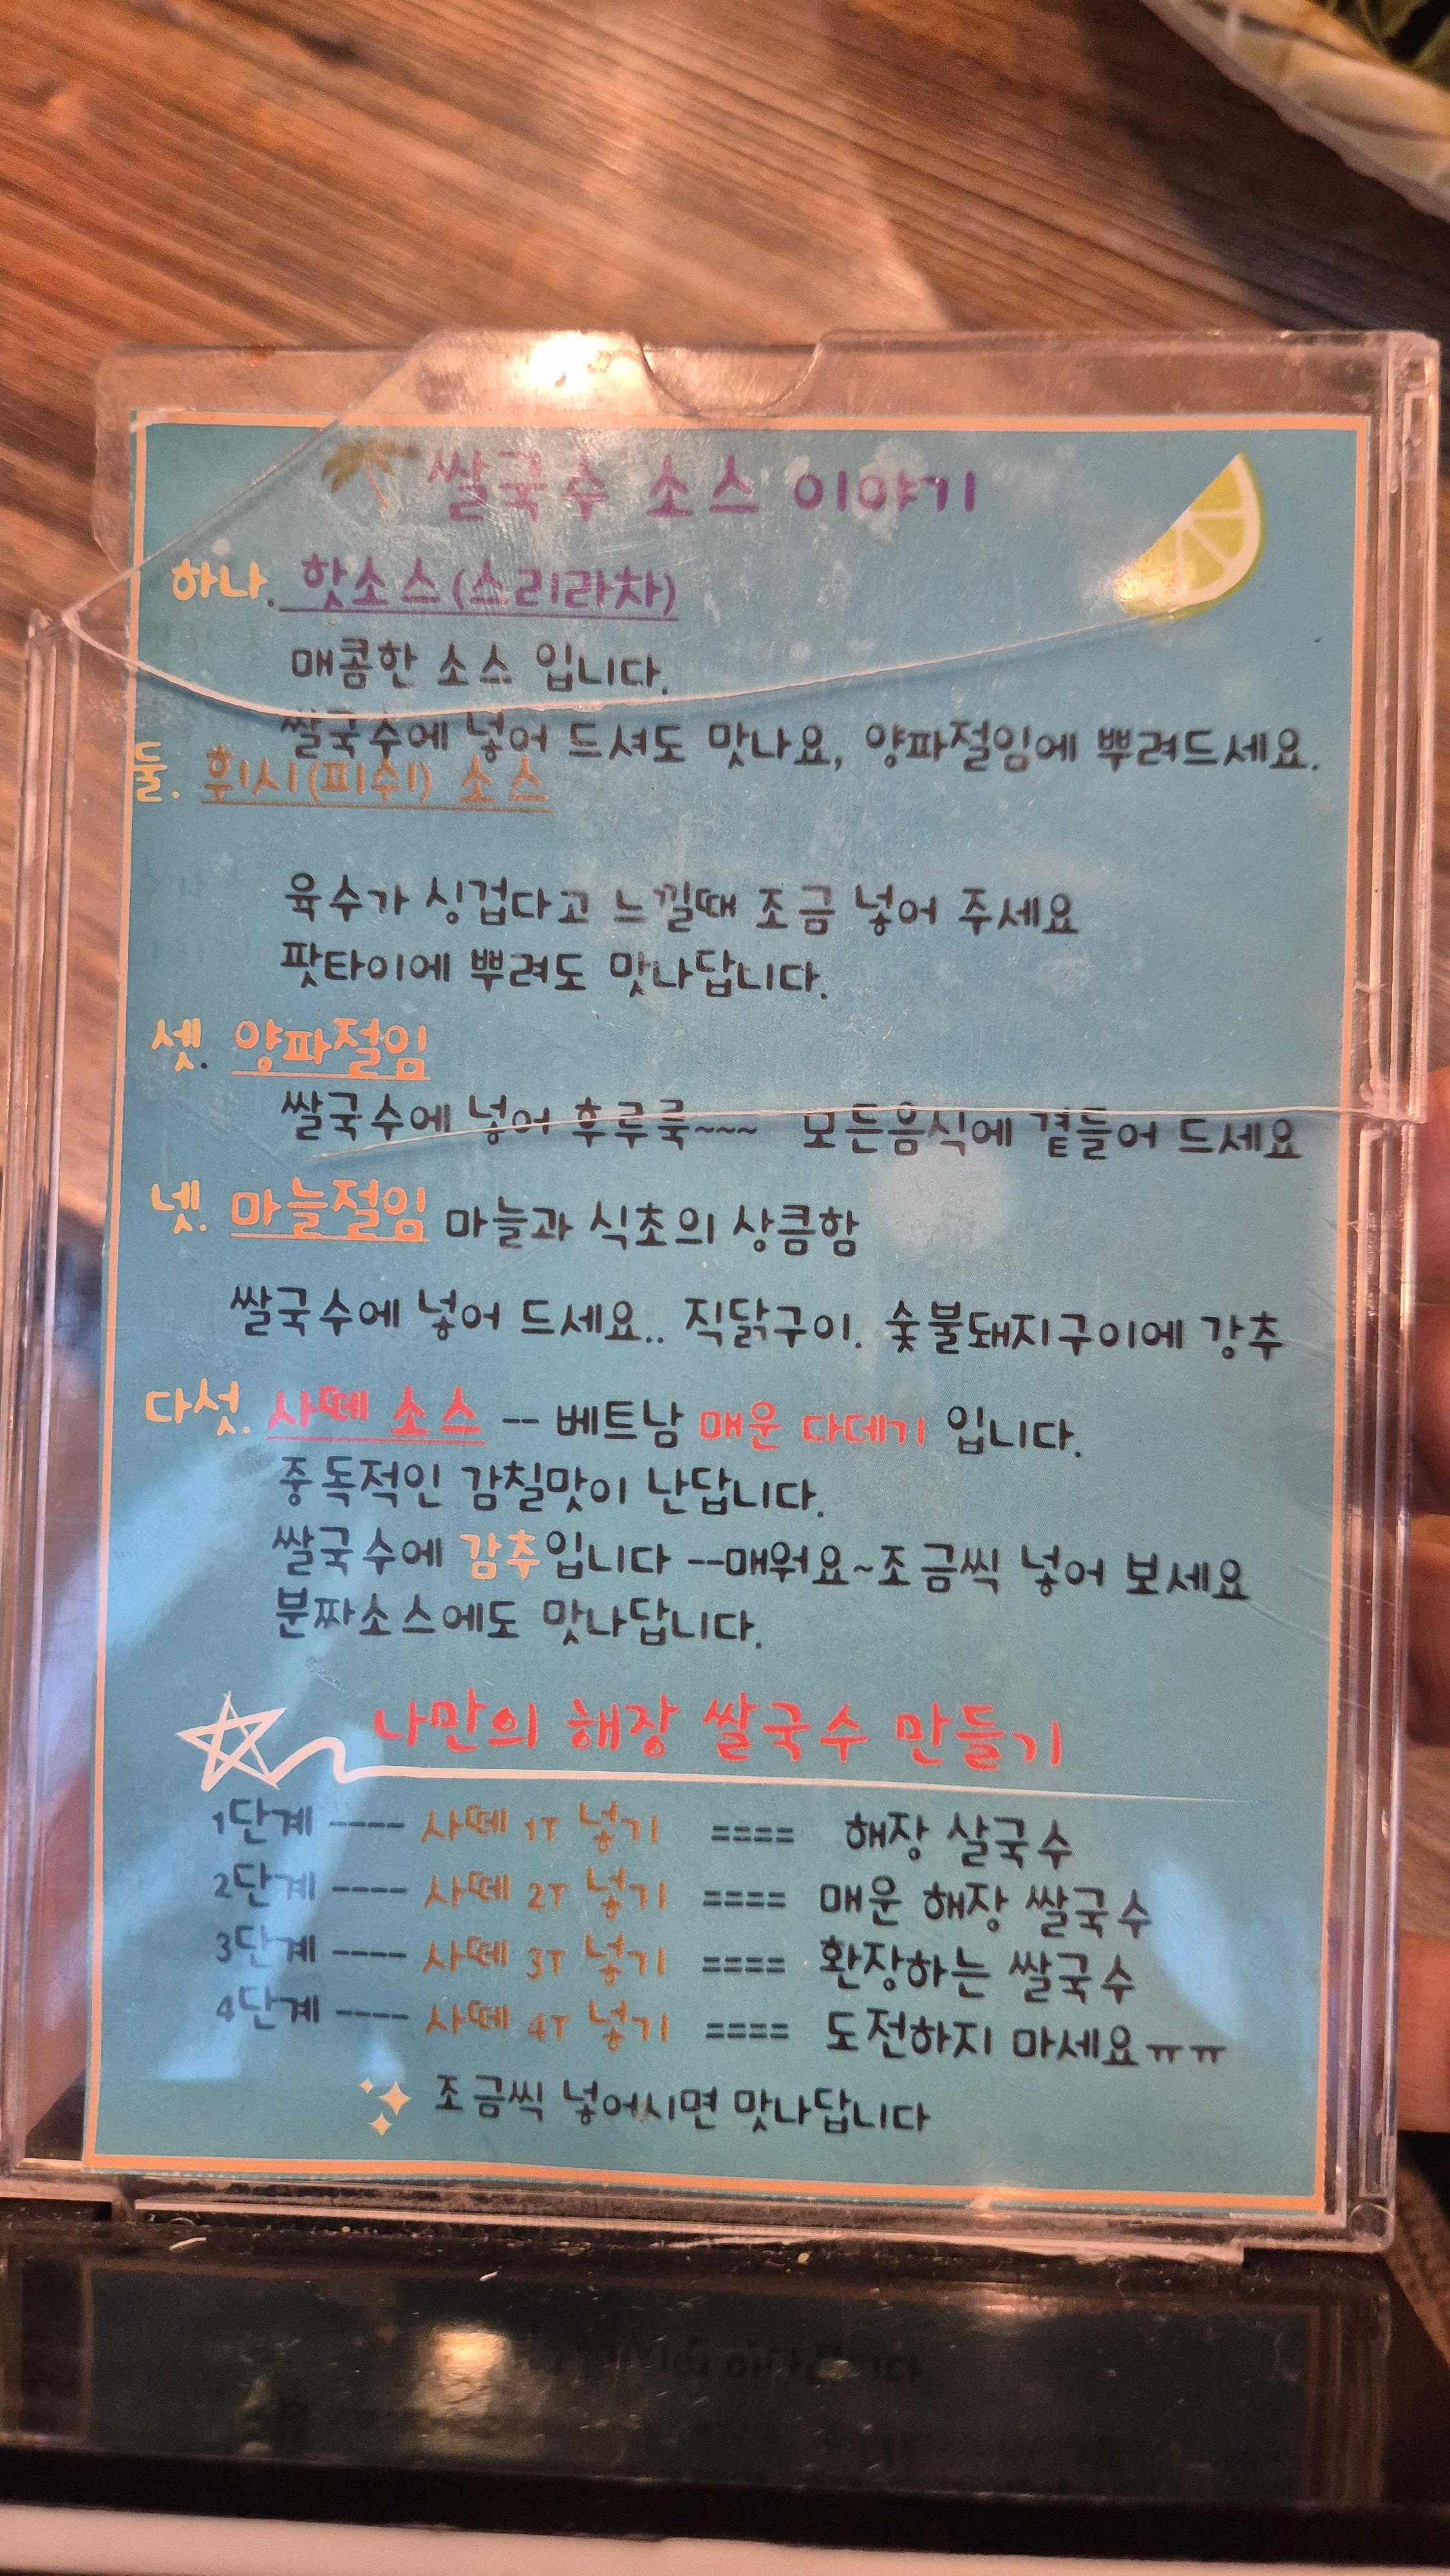 쌀국수 소스 이야기
하나. 핫소스(스리라차)
매콤한 소스 입니다.
쌀국수에 넣어 드셔도 맛나요, 양파절임에 뿌려드세요.
둘. 휘시(피쉬) 소스
육수가 싱겁다고 느낄때 조금 넣어 주세요
팟타이에 뿌려도 맛나답니다.
셋. 양파절임
쌀국수에 넣어 후루룩~~~ 모든음식에 곁들어 드세요
넷. 마늘절임 마늘과 식초의 상큼함
쌀국수에 넣어 드세요.. 직닭구이. 숯불돼지구이에 강추
다섯. 사떼 소스 -- 베트남 매운 다데기 입니다.
중독적인 감칠맛이 난답니다.
쌀국수에 감추입니다 --매워요~조금씩 넣어 보세요
분짜소스에도 맛나답니다.
나만의 해장 쌀국수 만들기
1단계 ---- 사떼 1T 넣기 ==== 해장 살국수
2단계 ---- 사떼 2T 넣기 ==== 매운 해장 쌀국수
3단계 ---- 사떼 3T 넣기 ==== 환장하는 쌀국수
4단계 ---- 사떼 4T 넣기 ==== 도전하지 마세요ㅠㅠ
조금씩 넣어시면 맛나답니다